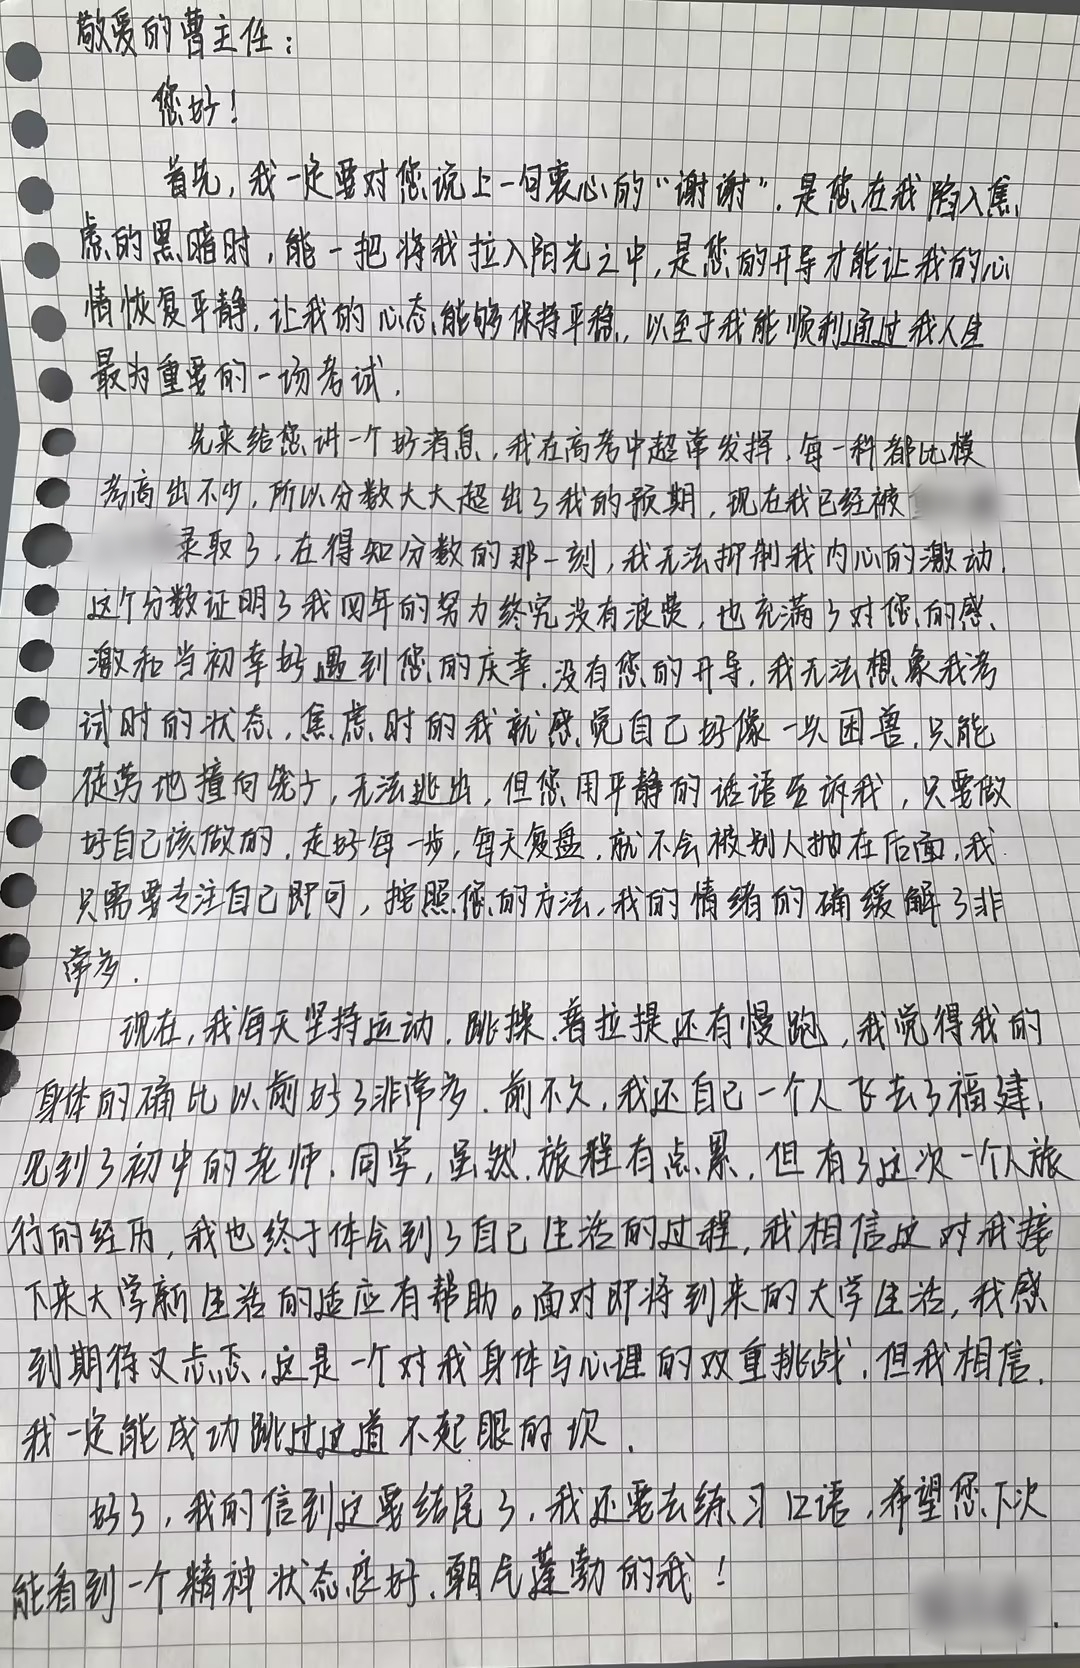 敬爱的曹主任：
您好！
首先，我一定要对您说上一句衷心的“谢谢”，是您在我陷入焦
虑的黑暗时，能一把将我拉入阳光之中，是您的开导才能让我的心
情恢复平静，让我的心态能够保持平稳，以至于我能顺利通过我人生
最为重要的一场考试.
先来给您讲一个好消息，我在高考中超常发挥，每一科都比模
考高出不少，所以分数大大超出了我的预期，现在我已经被
录取了，在得知分数的那一刻，我无法抑制我内心的激动.
这个分数证明了我四年的努力终究没有浪费，也充满了对您的感
激和当初幸好遇到您的庆幸.没有您的开导，我无法想象我考
试时的状态，焦虑时的我就感觉自己好像一只困兽，只能
徒劳地撞向笼子，无法逃出，但您用平静的话语告诉我，只要做
好自己该做的，走好每一步，每天复盘，就不会被别人抛在后面，我
只需要专注自己即可，按照您的方法，我的情绪的确缓解了非
常多.
现在，我每天坚持运动，跳操、普拉提还有慢跑，我觉得我的
身体的确比以前好了非常多.前不久，我还自己一个人飞去了福建，
见到了初中的老师、同学，虽然旅程有点累，但有了这次一个人旅
行的经历，我也终于体会到了自己生活的过程，我相信这对我接
下来大学新生活的适应有帮助。面对即将到来的大学生活，我感
到期待又忐忑，这是一个对我身体与心理的双重挑战，但我相信，
我一定能成功跳过这道不起眼的坎.
好了，我的信到这要结尾了，我还要去练习口语，希望您下次
能看到一个精神状态良好、朝气蓬勃的我！